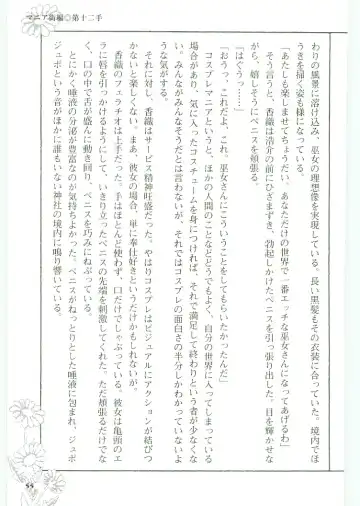 マニア街編◎第十二手
わりの風景に溶け込み、巫女の理想像を実現している。長い黒髪もその衣装に合っていた。境内でほ
うきを掃く姿も様になっている。
「あたしも楽しませてちょうだい。あなただけの世界で一番エッチな巫女さんになってあげるわ」
香織は浩介の前にひざまずき、勃起しかけたペニスを引っ張り出した。目を輝かせな
がら、嬉しそうにペニスを頬張る。
「はぐうっ……」
「おうっ、これだよ、これ。巫女さんにこういうことをしてもらいたかったんだ」
コスプレマニアというと、ほかの人間のことなどどうでもよく、自分の世界に入ってしまっている
場合があり、気に入ったコスチュームを身につければ、それで満足して終わりという者が少なくな
い。みんながみんなそうだとは言わないが、それではコスプレの面白さの半分しかわかっていないよ
うな気がする。
それに対し、香織はサービス精神旺盛だった。やはりコスプレはビジュアルにアクションが結びつ
かないと楽しくない。まあ、彼女の場合、単に奉仕好きというだけかもしれないが。
香織のフェラチオは上手だった。手はほとんど使わず、口だけでしゃぶっている。彼女は亀頭のエ
ラに唇を引っかけるようにして、いきり立ったペニスの先端を刺激してくれた。ただ頬張るだけでな
く、口の中で舌が盛んに動き回り、ペニスを巧みにねぶっている。
とにかく唾液の分泌が豊富なのが気持ちよかった。ペニスがねっとりとした唾液に包まれ、ジュポ
ジュポという音がほかに誰もいない神社の境内に鳴り響いている。
55